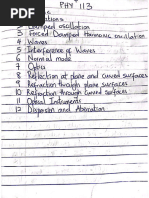 PHY 113
2 Damped oscillation
3 Forced Damped Harmonic oscillation
4 Waves
5 Interference of Waves
6 Normal mode
7 Optics
8 Reflection at plane and curved surfaces
9 Refraction through plane surfaces
10 Refraction through curved surfaces
11 Optical Instruments
12 Dispersion and Aberration